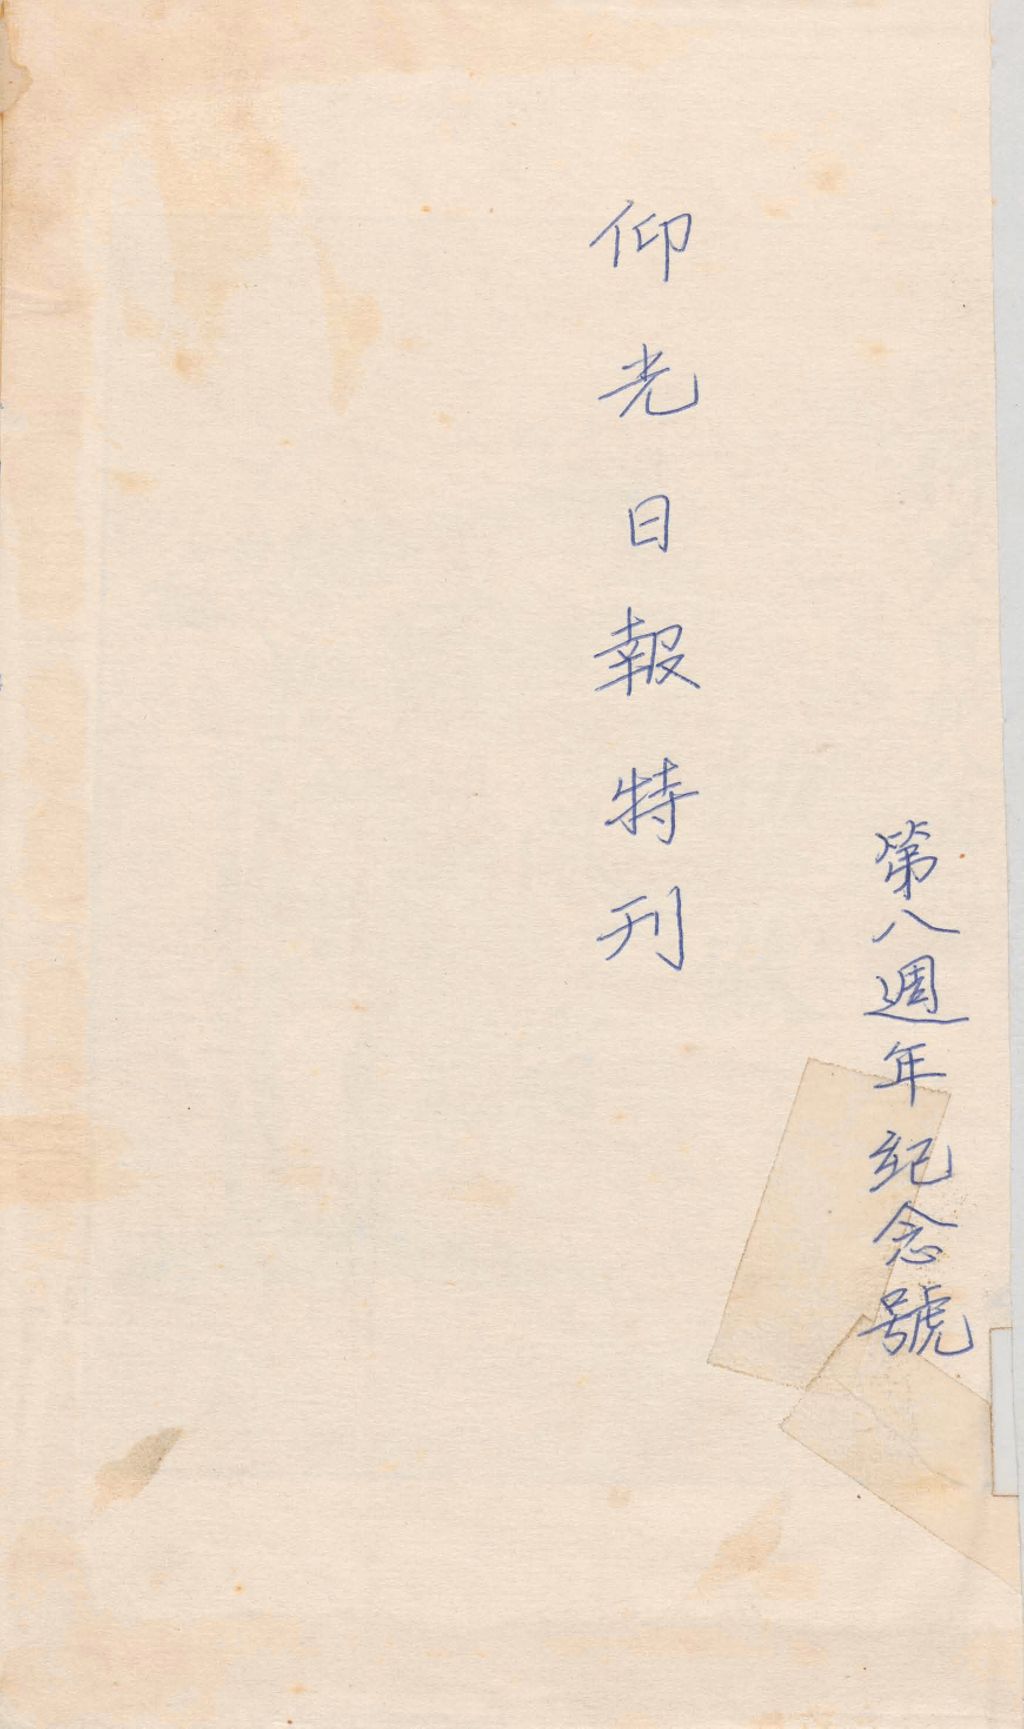 第八週年紀念號
仰光日報特刊